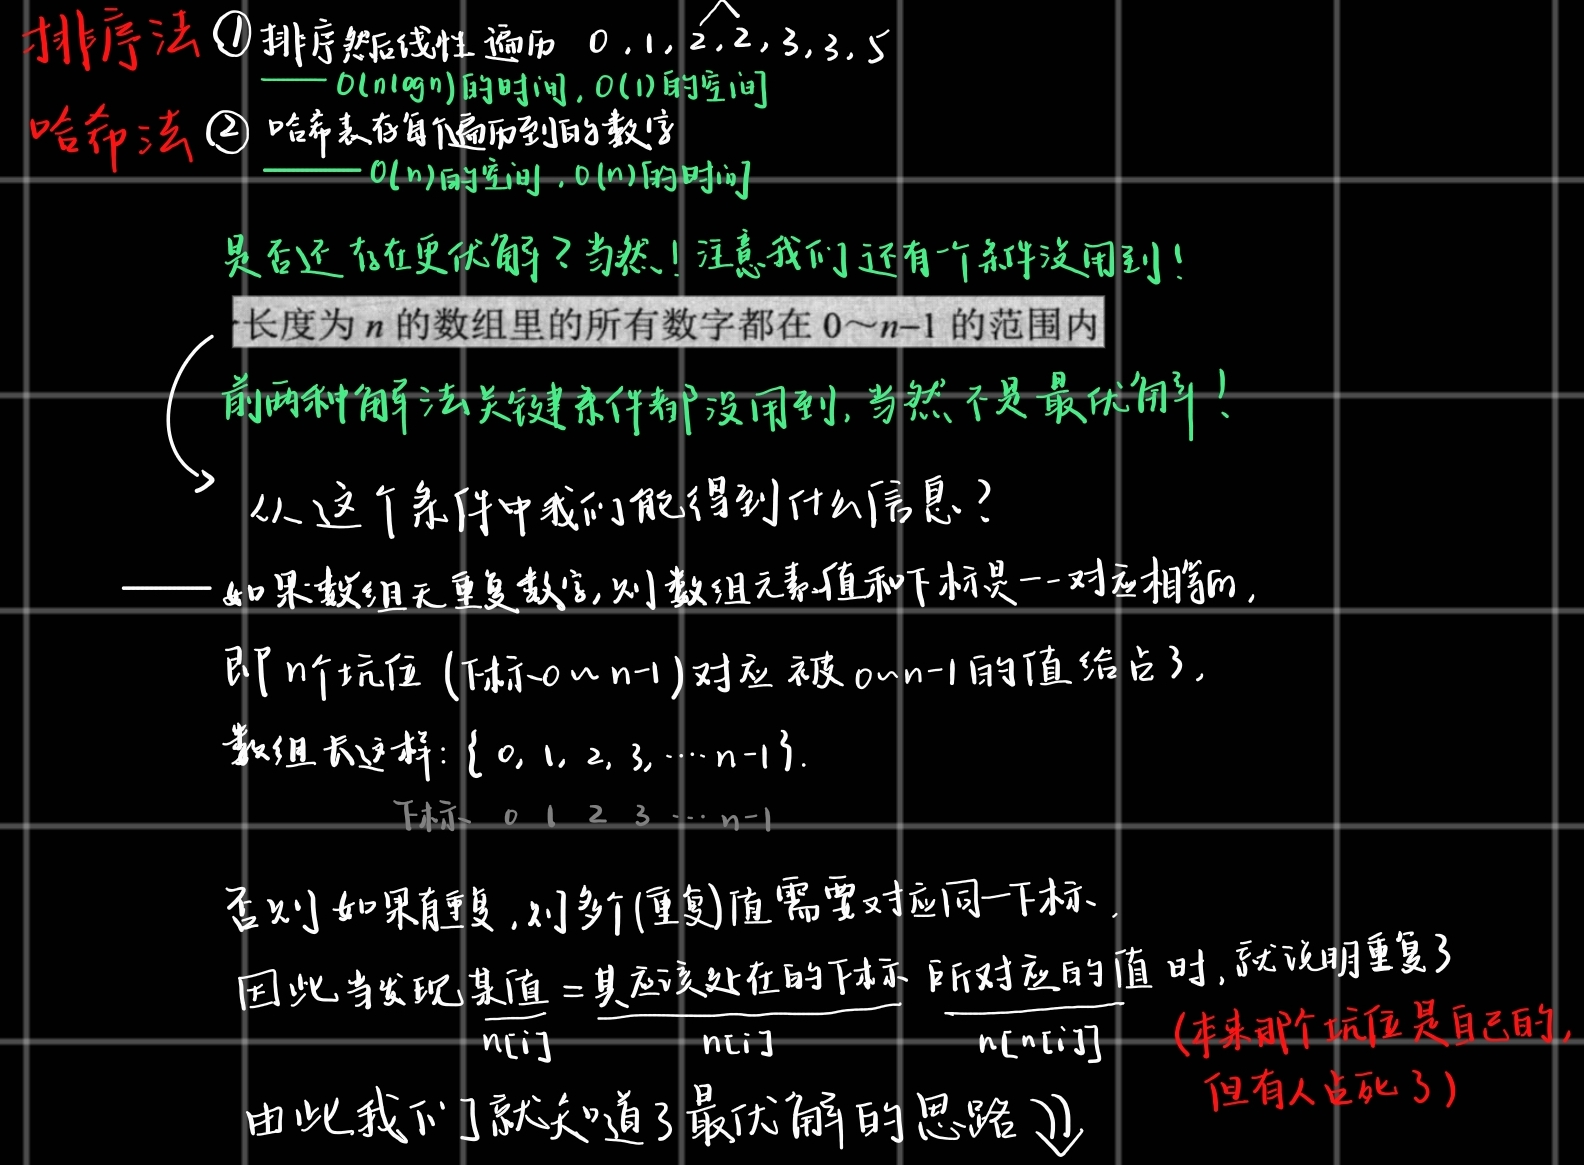 排序法 ① 排序然后线性遍历 0,1,2,2,3,3,5
—— O(nlogn)的时间,O(1)的空间
哈希法 ② 哈希表存每个遍历到的数字
—— O(n)的空间,O(n)的时间
是否还存在更优解?当然!注意我们还有一个条件没用到!
长度为 n 的数组里的所有数字都在 0~n-1 的范围内
前两种解法关键条件都没用到,当然不是最优解!
从这个条件中我们能得到什么信息?
—— 如果数组无重复数字,则数组元素值和下标是一一对应相等的,
即n个坑位(下标0~n-1)对应被0~n-1的值给占了,
数组长这样:{0,1,2,3,…n-1}.
下标 0 1 2 3 … n-1
否则如果有重复,则多个(重复)值需要对应同一下标.
因此当发现某值=其应该处在的下标所对应的值时,就说明重复了
n[i] n[i] n[n[i]]
(本来那个坑位是自己的,
但有人占死了)
由此我们就知道了最优解的思路